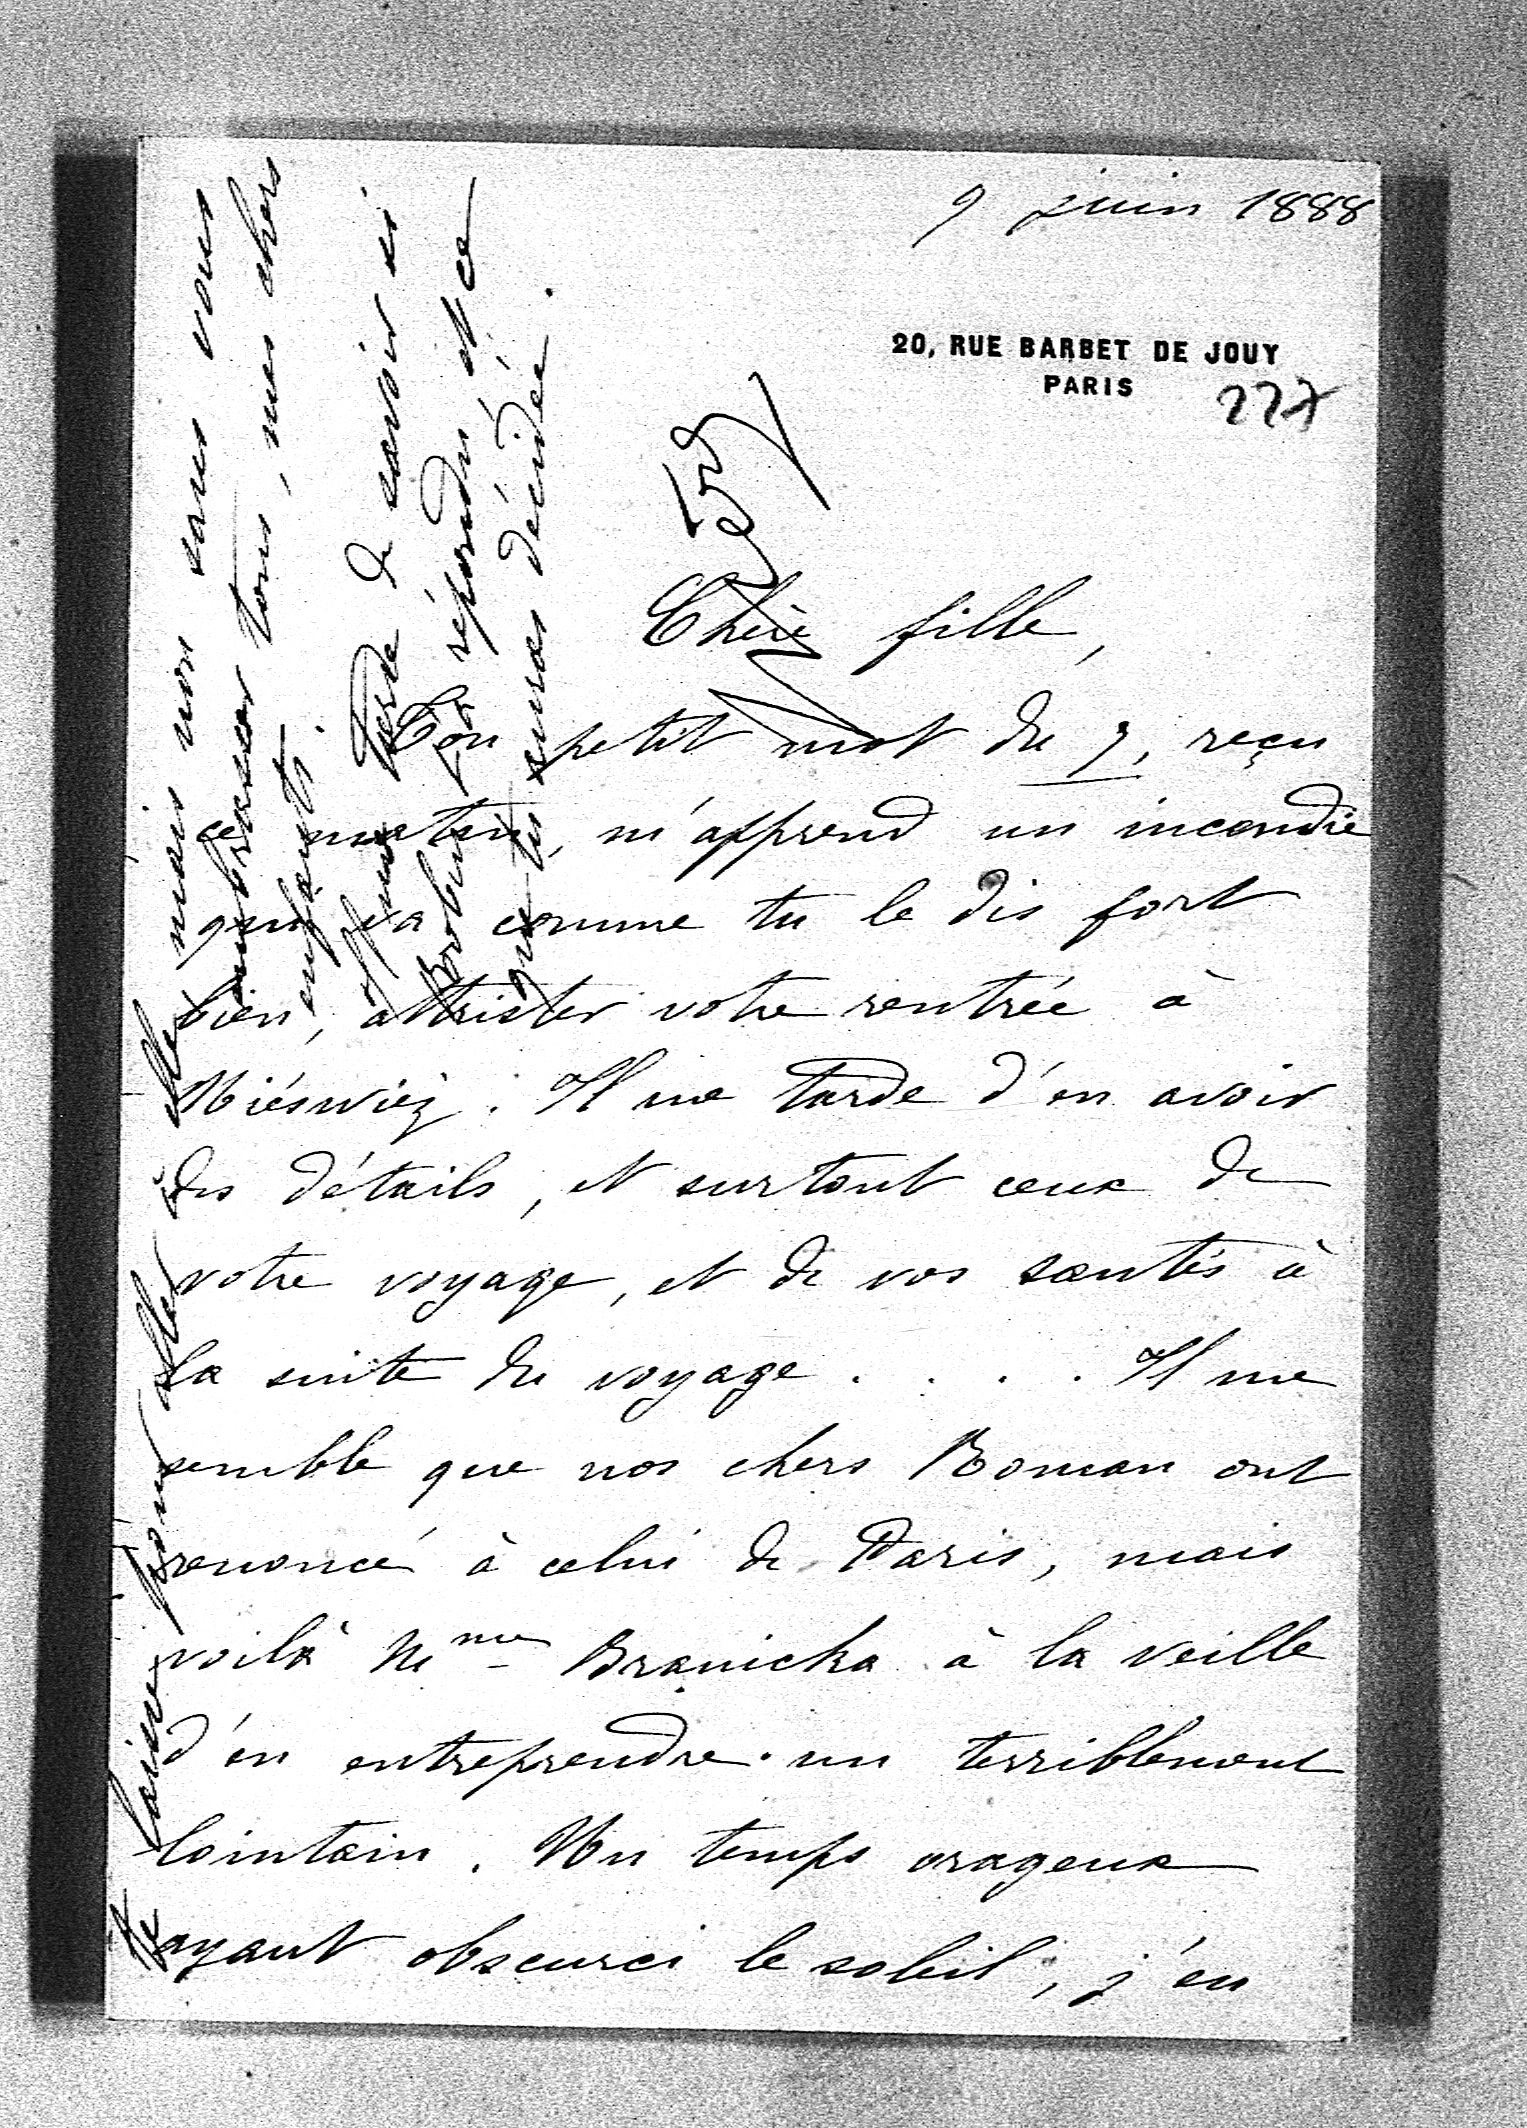 9 juin 1888
20, RUE BARBET DE JOUY
PARIS
227
Chère fille,
Ton petit mot du 7, reçu
ce matin, m'apprend un incendie
qui va comme tu le dis fort
bien, attrister votre rentrée à
Niéswiéz. Il me tarde d'en avoir
des détails, et surtout ceux de
votre voyage, et de vos santés à
la suite du voyage . . . . Il me
semble que nos chers Roman ont
renoncé à celui de Paris, mais
voilà Mme Branicka à la veille
d'en entreprendre un terriblement
lointain. Un temps orageux
ayant obscurci le soleil, j'en
te laisse pour aller à mais non sans vous
embrasser tous, mes chers
enfants.
Il me tarde de savoir si
Bobin a répondu et ce
que tu auras décidé.